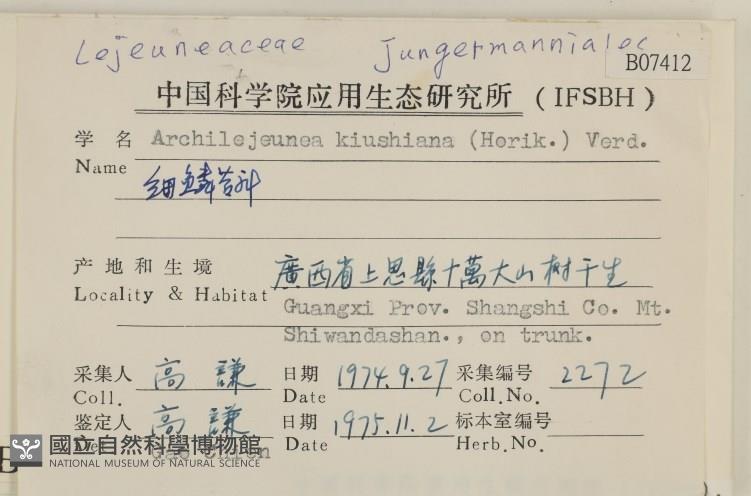 Lejeuneaceae Jungermanniales
B07412
中国科学院应用生态研究所 (IFSBH)
学 名 Archilejeunea kiushiana (Horik.) Verd.
Name
细鳞苔科
产 地 和 生 境 廣西省上思縣十萬大山樹干生
Locality & Habitat Guangxi Prov. Shangshi Co. Mt.
Shiwandashan., on trunk.
采集人 高 謙 日期 1974.9.27 采集编号 2272
Coll. Date Coll.No.
鉴定人 高 謙 日期 1975.11.2 标本室编号
Date Herb.No.
國立自然科學博物館
NATIONAL MUSEUM OF NATURAL SCIENCE